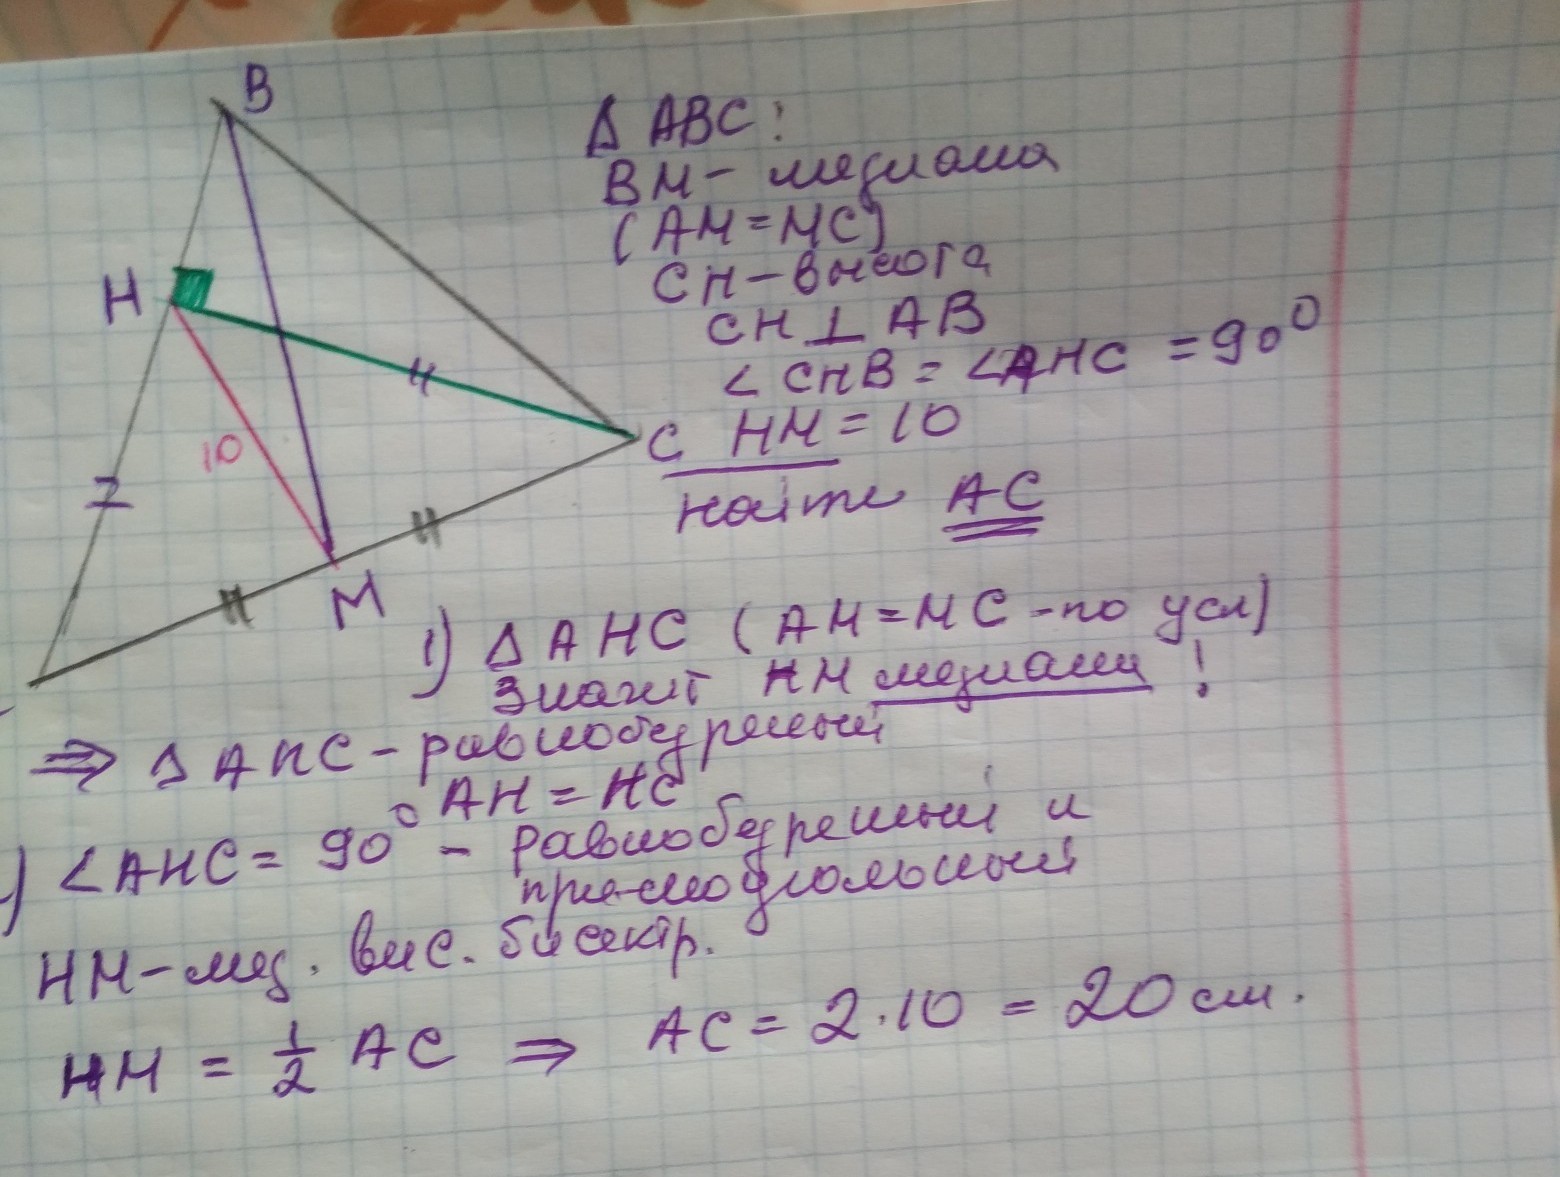 B
Δ ABC:
BM - медиана
(AM = MC)
H
CH - высота
CH ⊥ AB
∠CHB = ∠AHC = 90°
10
C
HM = 10
найти AC
M
1) Δ AHC (AM = MC - по усл)
Значит HM медиана!
⇒ Δ AHC - равнобедренный
AH = HC
) ∠AHC = 90° - равнобедренный и
прямоугольный
HM - мед. выс. биссектр.
HM = 1/2 AC ⇒ AC = 2·10 = 20 см.